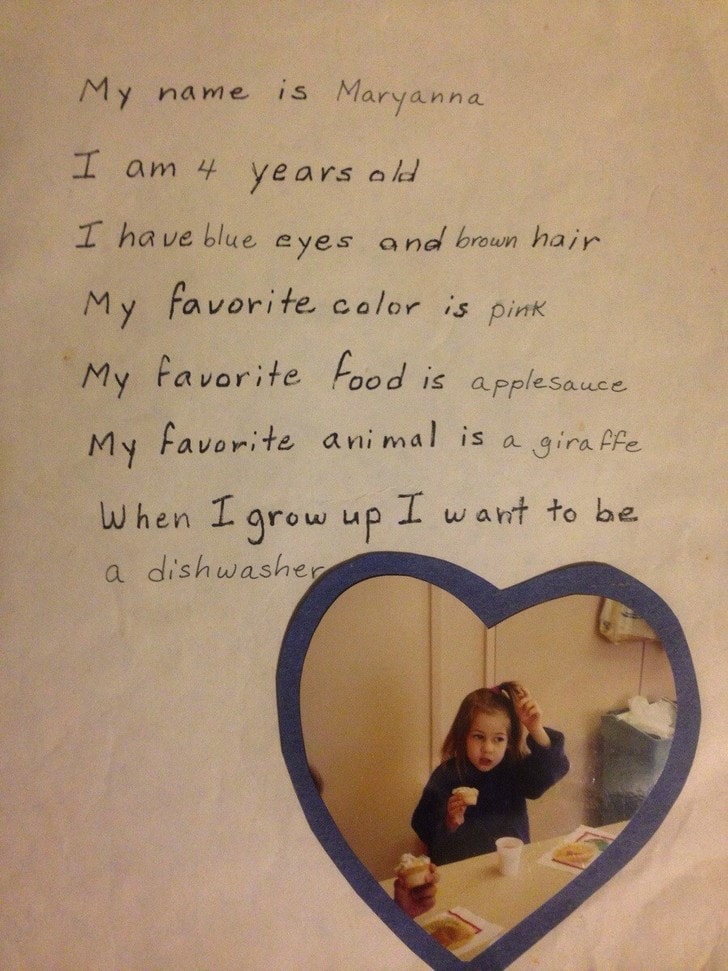 My name is Maryanna
I am 4 years old
I have blue eyes and brown hair
My favorite color is pink
My favorite food is applesauce
My favorite animal is a giraffe
When I grow up I want to be
a dishwasher